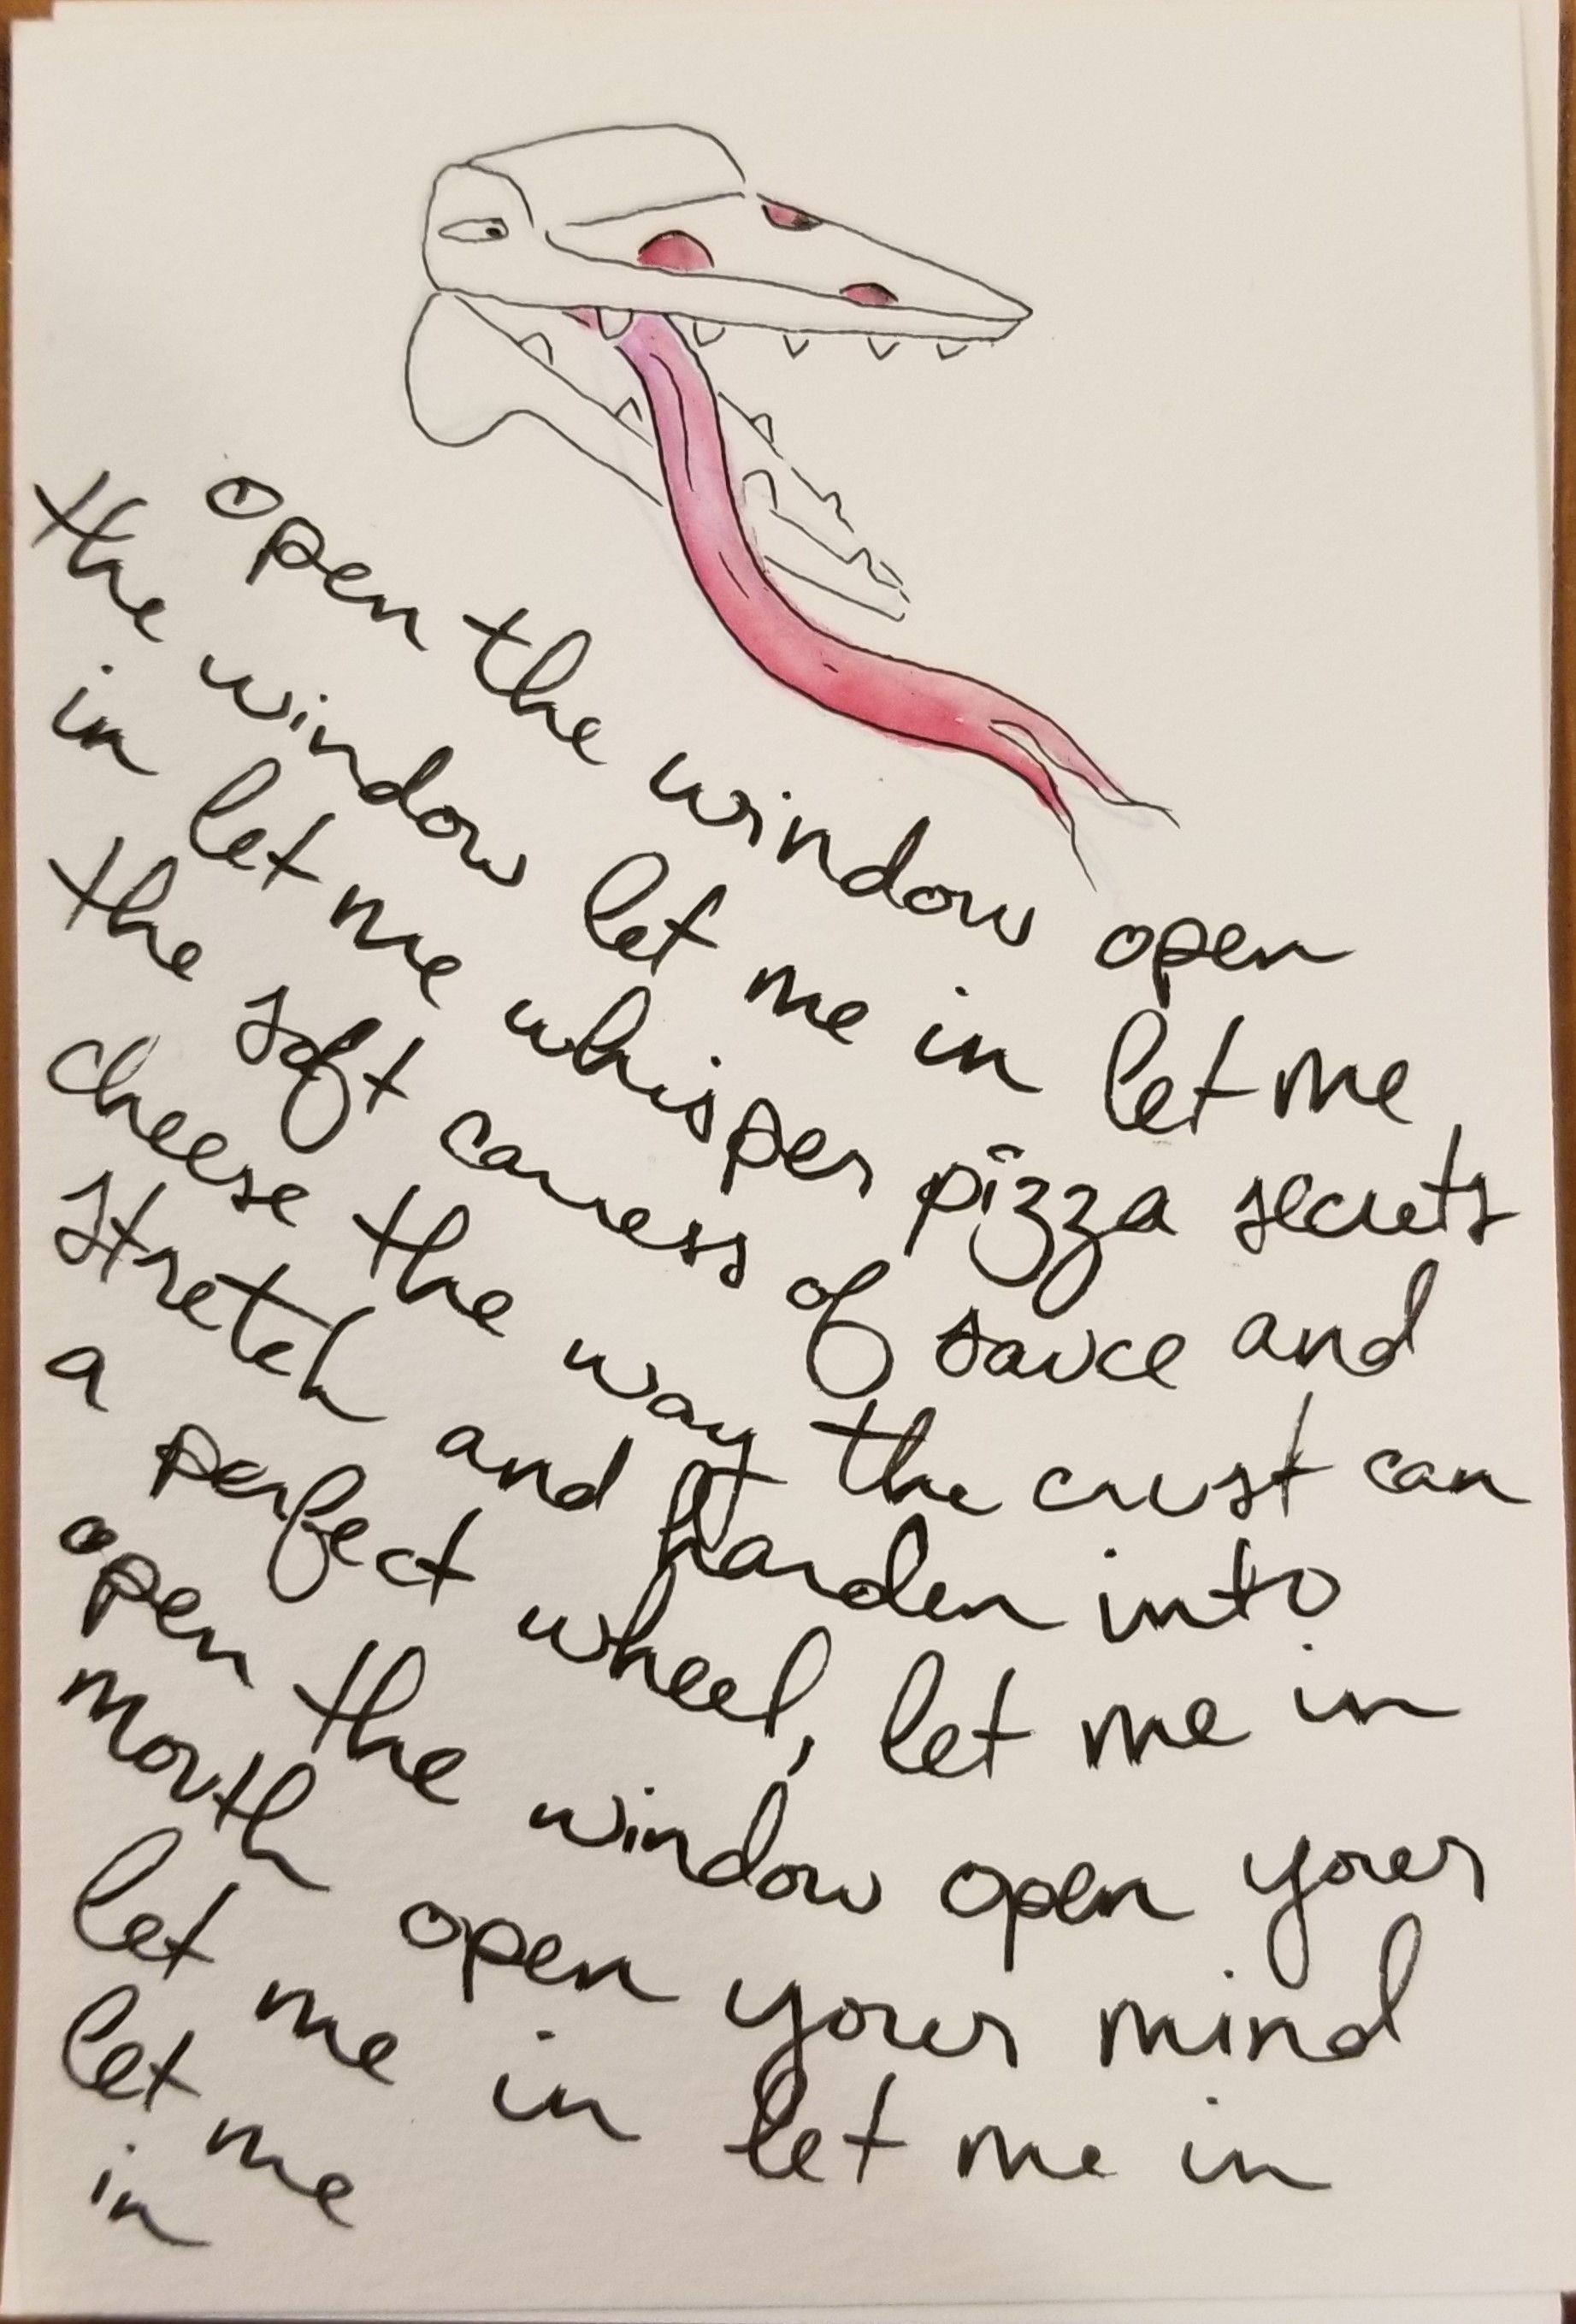 open the window open
the window let me in let me
in let me whisper pizza secrets
the soft caress of sauce and
cheese the way the crust can
stretch and harden into
a perfect wheel, let me in
open the window open your
mouth open your mind
let me in let me in
let me
in